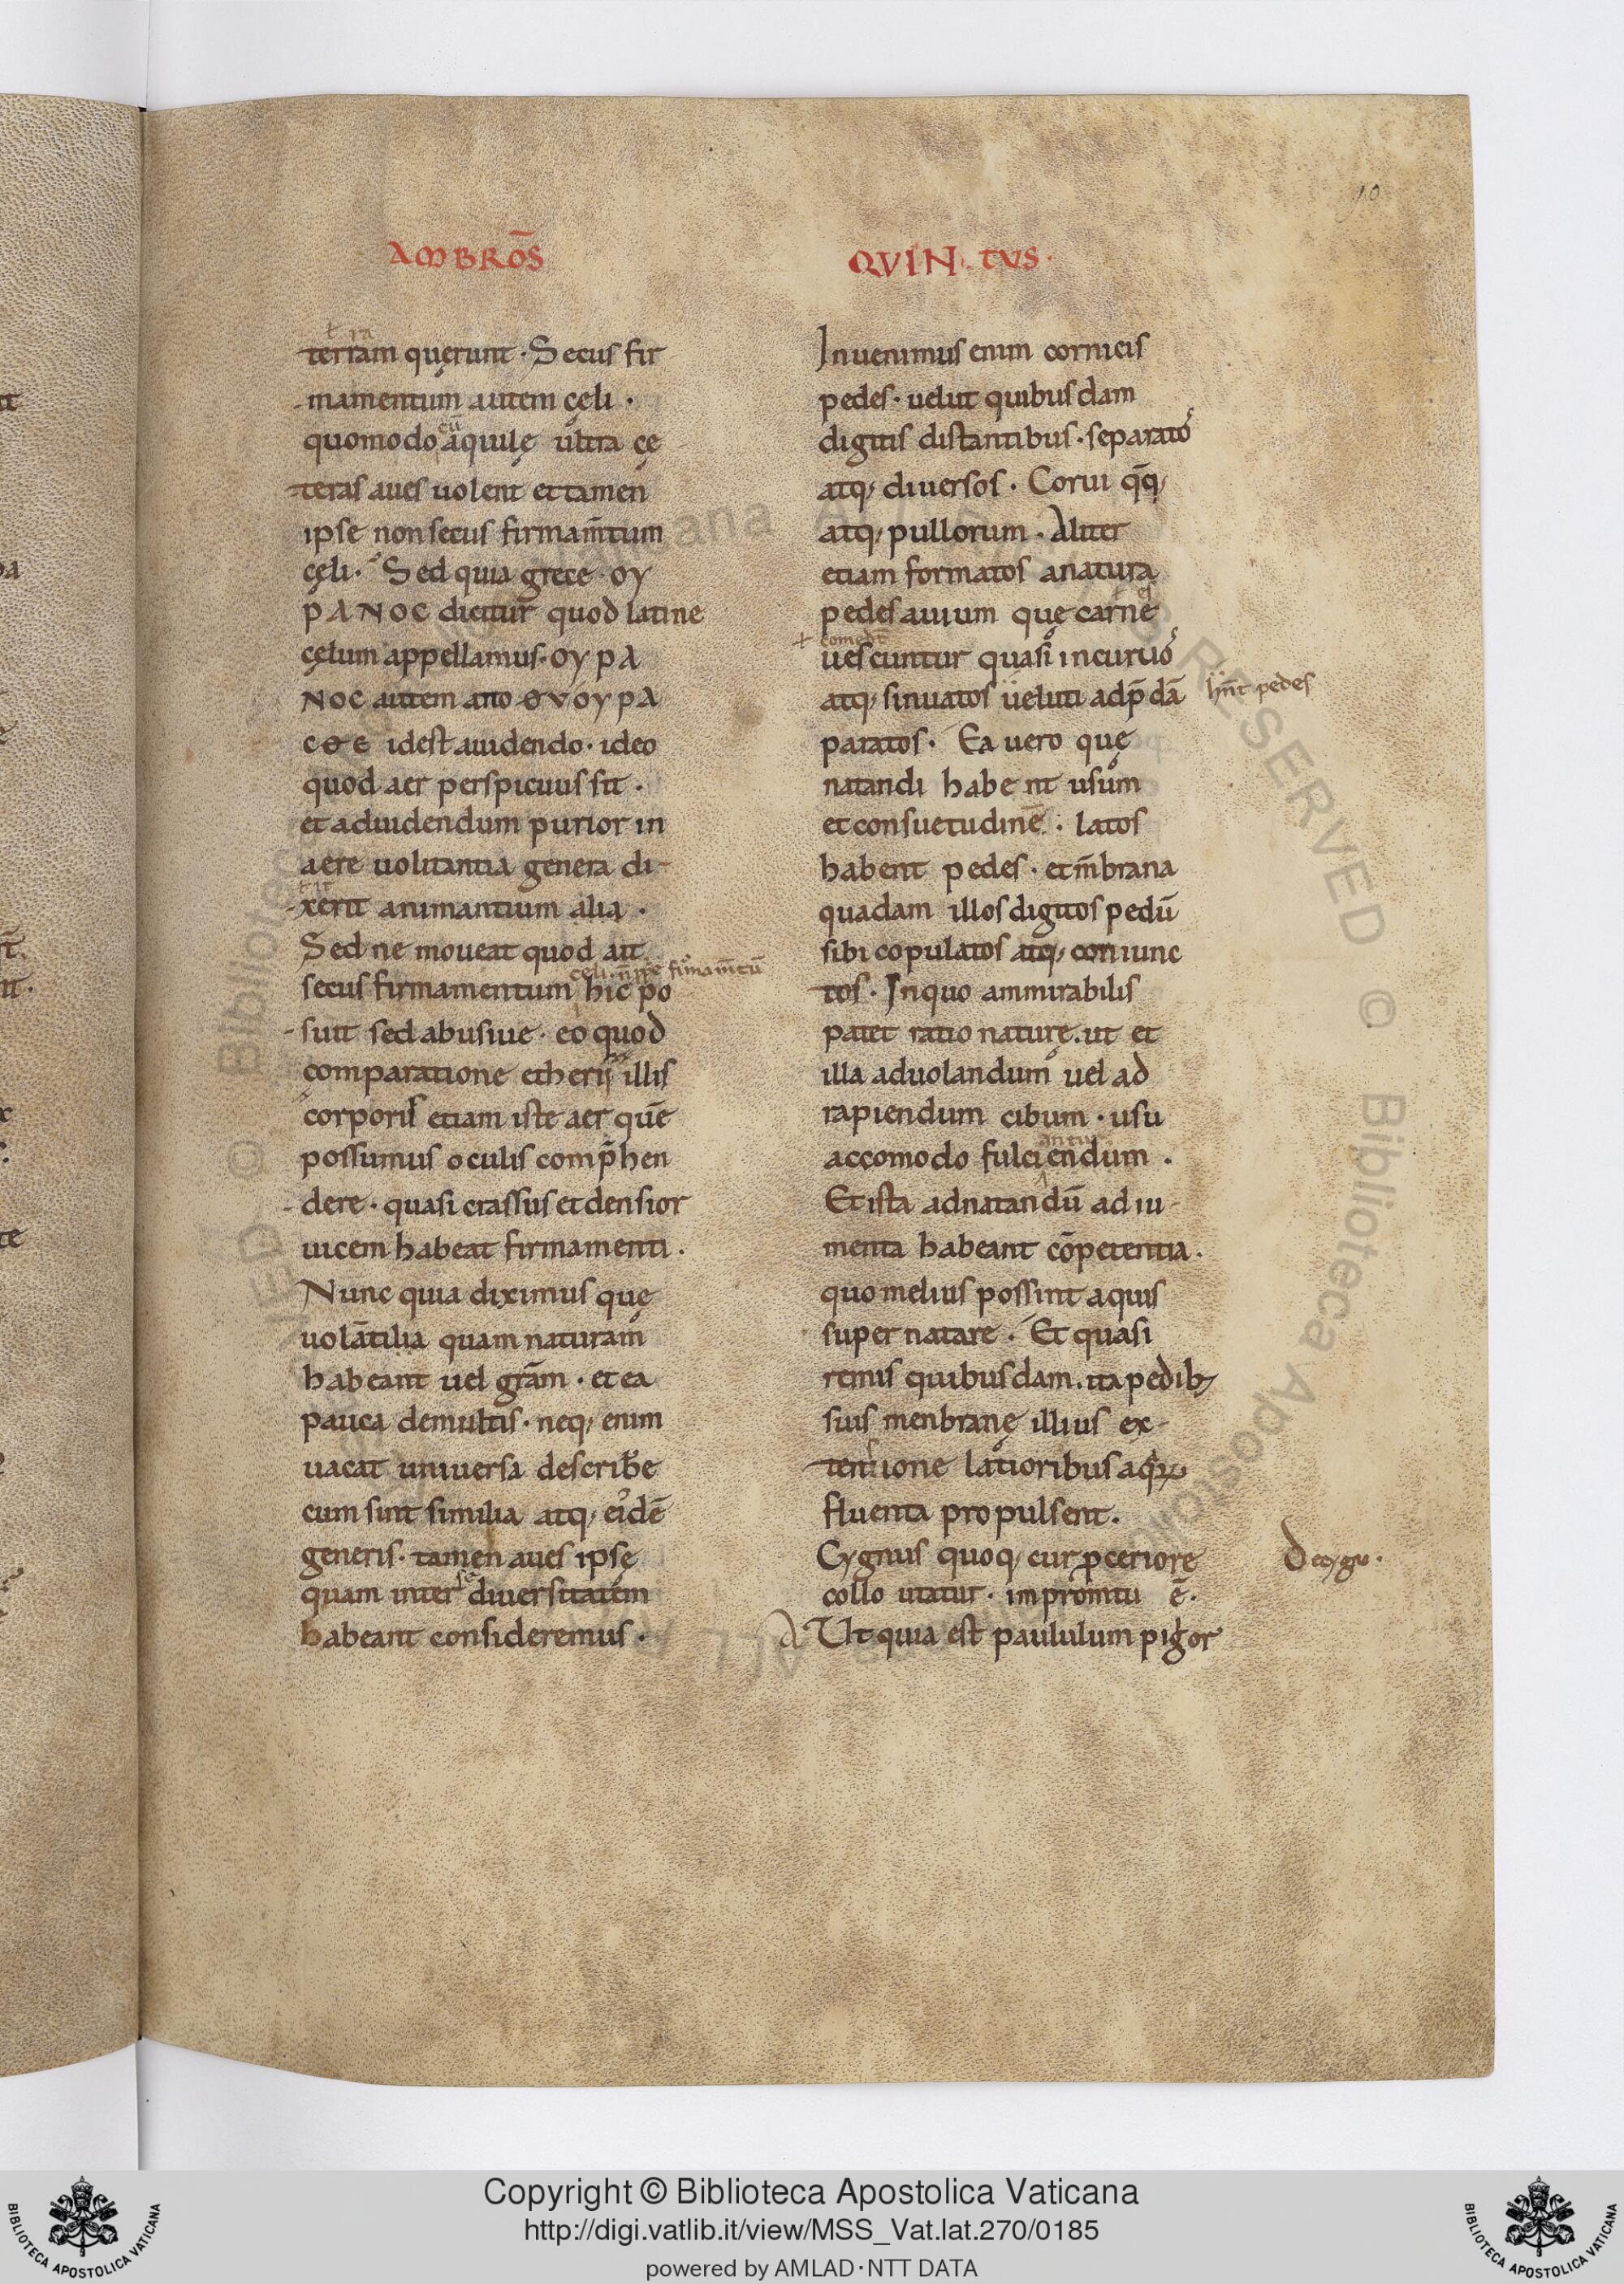 10
AMBROS̄
QVIN·TVS·
ł ra
terram quęrunt · Secus fir
mamentum autem cęli ·
cū
quomodo aquilę ultra cę
teras aues uolent et tamen
ipse non secus firmam̄tum
cęli · Sed quia grece · OY
PANOC dicitur quod latine
cęlum appellamus · OYPA
NOC autem ano ΘVOYPA
CΘE idest auidendo · ideo
quod aer perspicuus sit ·
et aduidendum purior in
aere uolitantia genera di
ł it
xerit animantium alia ·
Sed ne moueat quod ait
cęli · firmam̄tū
secus firmamentum hic po
suit sed abusiue · eo quod
comparatione etherij illis
corporis etiam iste aer quē
possumus oculis comp̄hen
dere · quasi crassus et densior
uicem habeat firmamenti .
Nunc quia diximus quę
uolatilia quam naturam
habeant uel grām · et ea
pauca demultis · neq, enim
uacat uniuersa describ̄e
cum sint similia atq, eidē
generis · tamen aues ipsę
se
quam inter diuersitatem
habeant consideremus ·
Inuenimus enim cornicis
pedes · uelut quibusdam
digitis distantibus · separato
atq, diuersos · Corui q̄q,
atq, pullorum · Aliter
etiam formatos anatura
pedes auium quę carne
ł comedt
uescuntur quasi incuruo
atq, sinuatos ueluti adp̄dā
hn̄t pedes
paratos · Ea uero quę
natandi habent usum
et consuetudinē · latos
habent pedes · et m̄brana
quadam illos digitos pedū
sibi copulatos atq, coniunc
tos · Inquo ammirabilis
patet ratio naturę . ut et
illa aduolandum uel ad
rapiendum cibum · usu
antur
accomodo fulciendum .
Et ista adnatandū adiu
menta habeant cōpetentia .
quo melius possint aquis
supernatare · Et quasi
remis quibusdam . ita pedib;
suis menbranę illius ex
tensione latioribus aq̄ꝝ
fluenta propulsent .
Cygnus quoq, cur ꝓceriorę
De cygno ·
collo utatur · impromtu ē ·
A Ut quia est paululum pigor
Copyright © Biblioteca Apostolica Vaticana
http://digi.vatlib.it/view/MSS_Vat.lat.270/0185
powered by AMLAD·NTT DATA
BIBLIOTECA APOSTOLICA VATICANA
BIBLIOTECA APOSTOLICA VATICANA